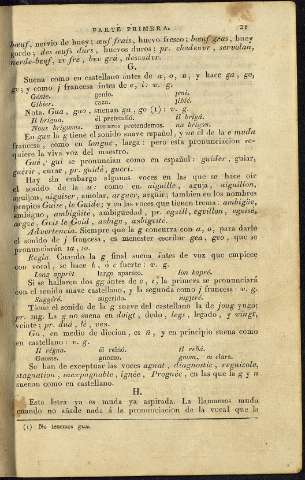 PARTE PRIMERA. 21
bœuf, nervio de buey; œuf frais, huevo fresco; bœuf gras, buey
gordo; des œufs durs, huevos duros: pr.
G.
Suena como en castellano antes de a, o, u, y hace ga, go,
gu; y como j francesa antes de e, i: v. g.
Génie. genio. jeni.
Gibier. caza.
Nota. Gua, guo, suenan ga, go (1): v. g.
Il brigua. él pretendió. il brigá.
Nous briguons. nosotros pretendemos. nu brigon.
En gue la g tiene el sonido suave español, y ue el de la e muda
francesa, como en longue, larga: pero esta pronunciacion re-
quiere la viva voz del maestro.
Gué, gui se pronuncian como en español: guider, guiar,
guérir, curar, pr. guidé, gueri.
Hay sin embargo algunas voces en las que se hace oir
el sonido de la u: como en aiguille, aguja, aiguillon,
aguijon, aiguiser, amolar, arguer, argüir; tambien en los nombres
propios Guise, le Guide; y en las voces que tienen trema: ambigüe,
ambiguo, ambigüité, ambigüedad, pr.
Advertencia. Siempre que la g concurra con a, o, para darle
el sonido de j francesa, es menester escribir gea, geo, que se
pronunciarán ja, jo.
Regla. Cuando la g final suena antes de voz que empieza
con vocal, se hace k, ó c fuerte: v. g.
Long apprêt. largo aparejo. lon kapré.
Si se hallaren dos gg antes de e, i, la primera se pronunciará
con el sonido suave castellano, y la segunda como j francesa: v. g.
Suggéré. sugerido. sugjeré.
Tiene el sonido de la g suave del castellano la de joug yugo;
pr. jug. La g no suena en doigt, dedo, legs, legado, y vingt,
veinte: pr. duá, lé, ven.
Gn, en medio de diccion, es ñ, y en principio suena como
en castellano: v. g.
Il régna. él reinó. Il reñá.
Gnome. gnomo. gnom, es clara.
Se han de exceptuar las voces agnat, diagnostic, régnicole,
stagnation, inexpugnable, ignée, Prognée, en las que la g y n
suenan como en castellano.
H.
Esta letra ya es muda ya aspirada. La llamamos muda
cuando no añade nada á la pronunciacion de la vocal que la
(1) No tenemos gua.